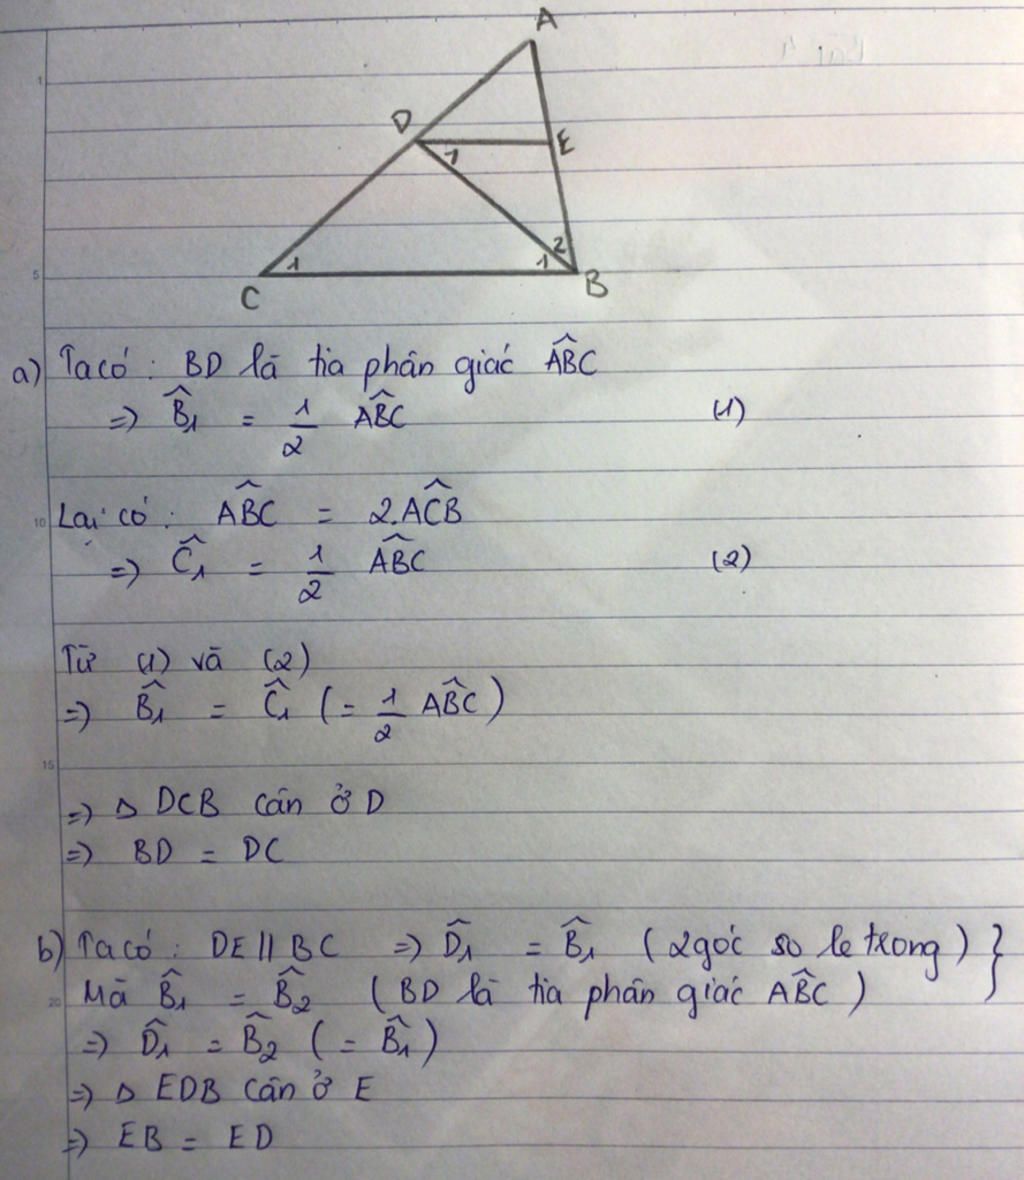 A
D
E
1
2
1
1
C
B
a) Ta có : BD là tia phân giác ABĈ
=> B̂₁ = 1/2 ABĈ (1)
Lại có : ABĈ = 2.ACB̂
=> Ĉ₁ = 1/2 ABĈ (2)
Từ (1) và (2)
=> B̂₁ = Ĉ₁ (= 1/2 ABĈ)
=> Δ DCB cân ở D
=> BD = DC
b) Ta có : DE // BC => D̂₁ = B̂₁ ( 2 góc so le trong ) }
Mà B̂₁ = B̂₂ ( BD là tia phân giác ABĈ )
=> D̂₁ = B̂₂ ( = B̂₁ )
=> Δ EDB cân ở E
=> EB = ED